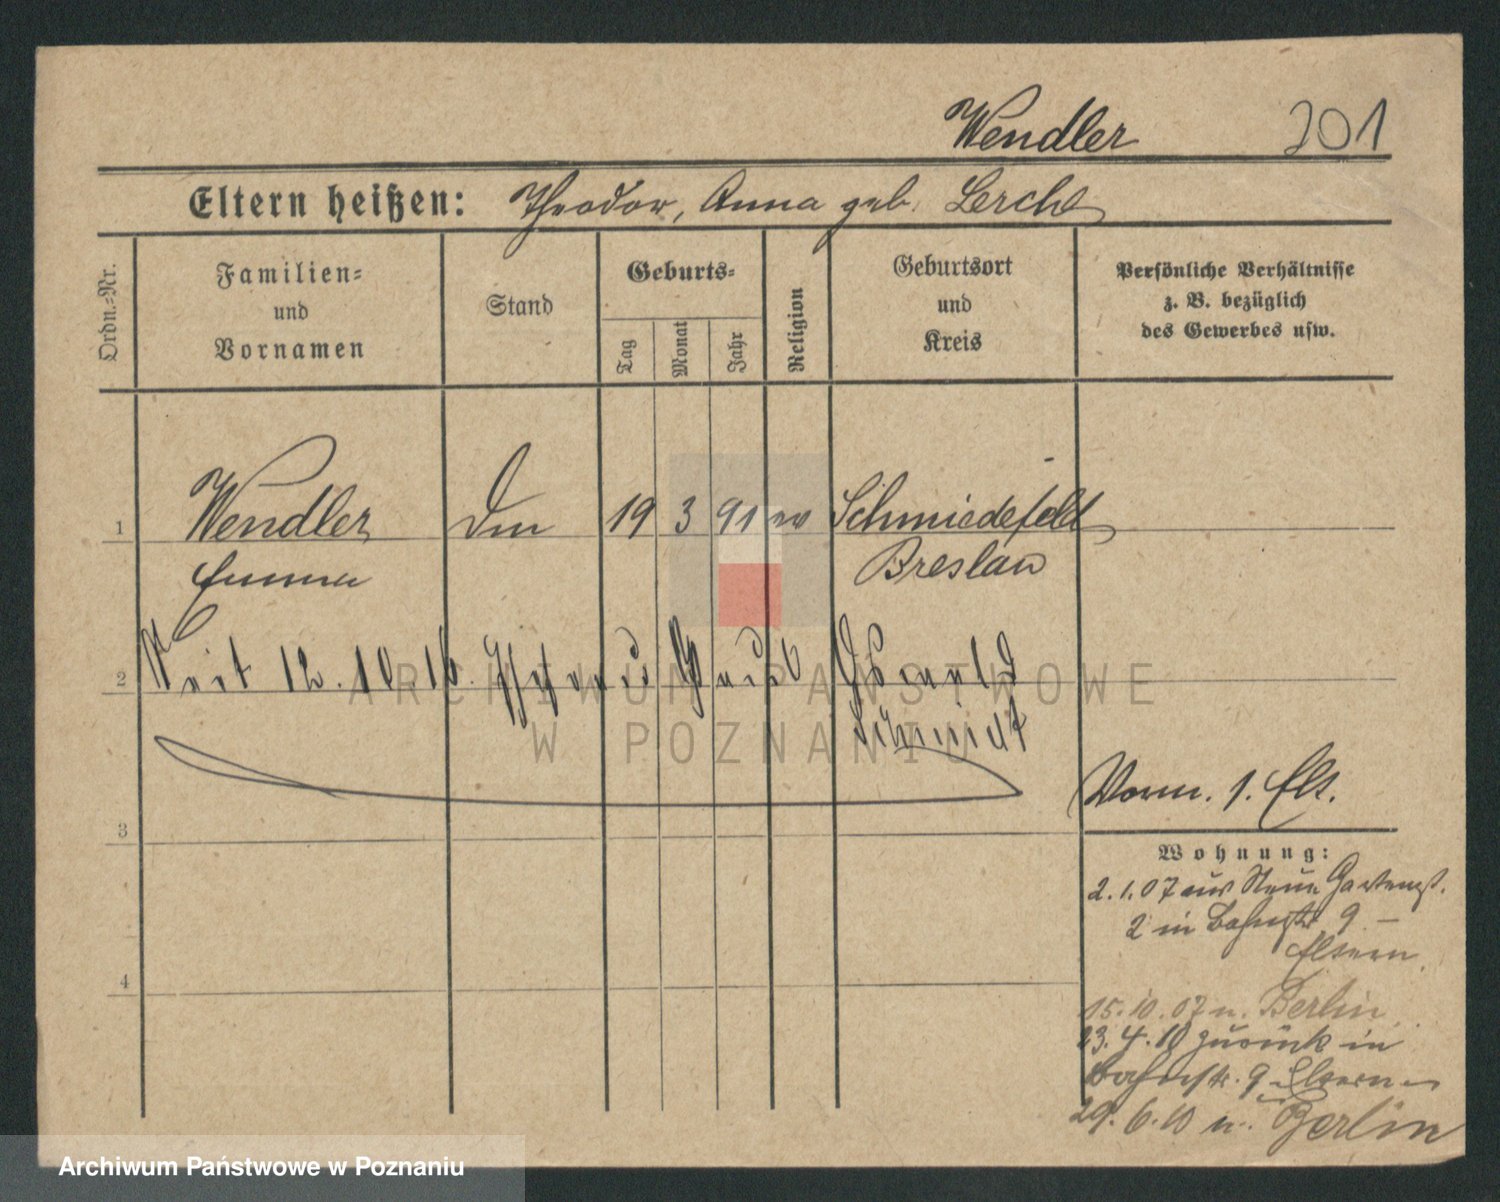 Wendler 201
Eltern heißen: Theodor, Anna geb. Lerche
Ordn.-Nr.
Familien-
und
Vornamen
Stand
Geburts-
Tag
Monat
Jahr
Religion
Geburtsort
und
Kreis
Persönliche Verhältnisse
z. B. bezüglich
des Gewerbes usw.
1 Wendler 19 3 91 ev Schmiedefeld
Emma Breslau
2 Seit 12. 10 16. Ehefrau Oswald
Schmidt
Vorm. 1. Elt.
3
Wohnung:
2. 1. 07 aus Neue Gartenst.
2 in Bahnstr 9 –
Eltern
4
15. 10. 07 n. Berlin
23. 4. 10 zurück in
Bahnstr. 9 Eltern
29. 6. 10 n. Berlin
ARCHIWUM PAŃSTWOWE
W POZNANIU
Archiwum Państwowe w Poznaniu